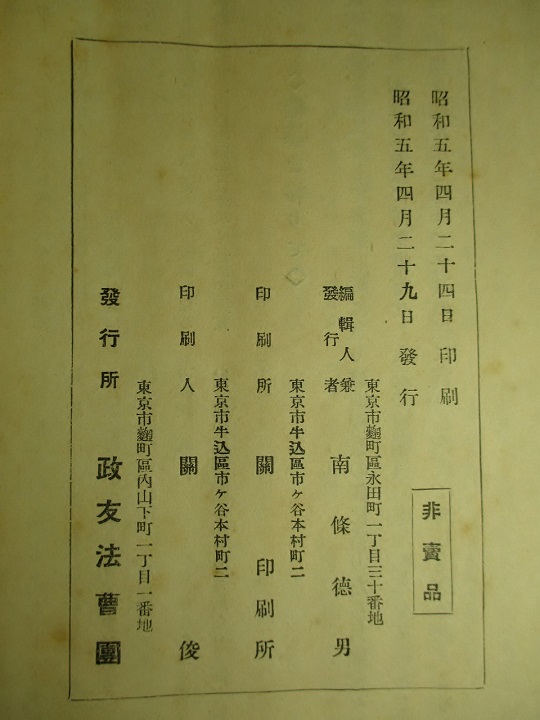 昭和五年四月二十四日印刷
昭和五年四月二十九日發行
非賣品
東京市麴町區永田町一丁目三十番地
編輯人兼
發行者
南條德男
東京市牛込區市ヶ谷本村町二
印刷所 關印刷所
東京市牛込區市ヶ谷本村町二
印刷人 關俊
東京市麴町區內山下町一丁目一番地
發行所 政友法曹團